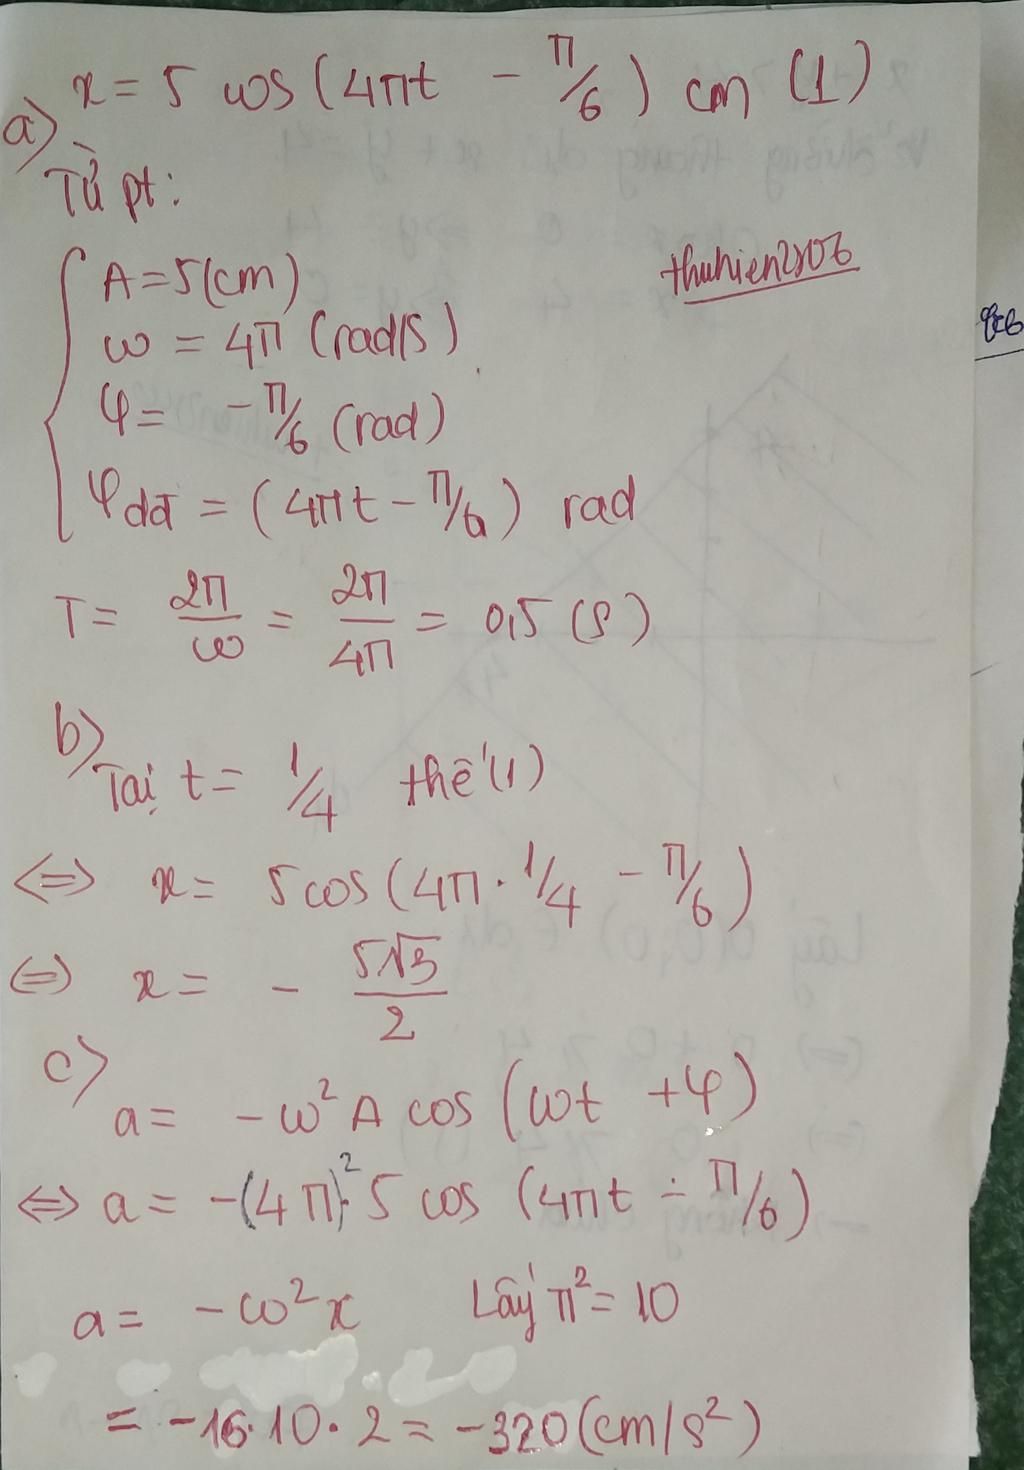 x = 5 cos (4πt - π/6) cm (1)
a)
Từ pt:
A = 5 (cm)
ω = 4π (rad/s)
φ = -π/6 (rad)
φdđ = (4πt - π/6) rad
thuhien2806
T = 2π/ω = 2π/4π = 0,5 (s)
b)
Tại t = 1/4 thế (1)
⇔ x = 5 cos (4π · 1/4 - π/6)
⇔ x = - 5√3/2
c)
a = -ω² A cos (ωt + φ)
⇔ a = -(4π)²·5 cos (4πt - π/6)
a = -ω²x Lấy π² = 10
= -16·10·2 = -320 (cm/s²)